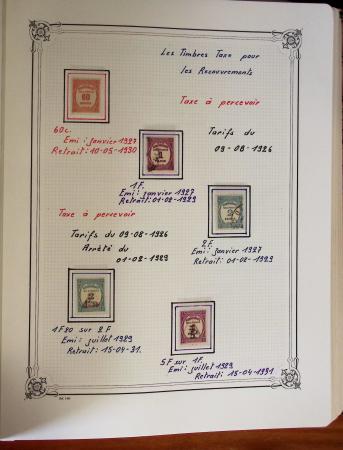 Les Timbres Taxe pour
les Recouvrements
Taxe à percevoir
60c.
Emi: janvier 1927
Retrait: 10-05-1930
Tarifs du
09-08-1926
1F.
Emi: janvier 1927
Retrait: 01-02-1929
Taxe à percevoir
Tarifs du 09-08-1926
Arrêté du
01-02-1929
2F.
Emi: janvier 1927
Retrait: 01-02-1929
1F20 sur 2F
Emi: juillet 1929
Retrait: 15-04-31.
5F sur 1F.
Emi: juillet 1929
Retrait: 15-04-1931